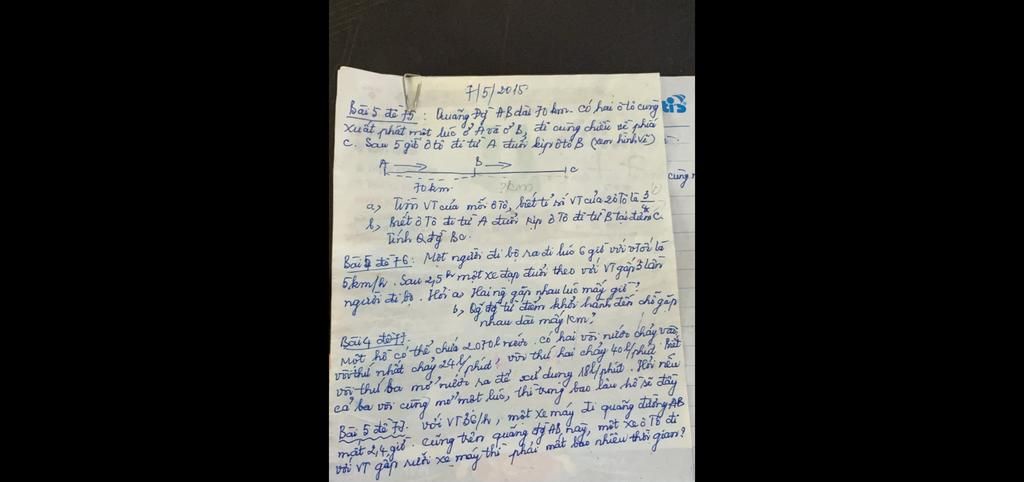 7/5/2015
Bài 5 đề 75: Quãng đg AB dài 70 km. có hai ô tô cùng
xuất phát một lúc ở A và ở B, đi cùng chiều về phía
C. Sau 5 giờ ô tô đi từ A đuổi kịp ôtô B (xem hình vẽ)
A B C
70km ?km
a, Tìm VT của mỗi ô Tô, biết tỉ số VT của 2 ô Tô là 3/4
b, Biết Ô Tô đi từ A đuổi kịp ô Tô đi từ B tại điểm C.
Tính Q đg BC.
Bài 4 đề 76: Một người đi bộ ra đi lúc 6 giờ với vtốc là
5km/h. Sau 2,5h một xe đạp đuổi theo với VT gấp 3 lần
người đi bộ. Hỏi a, Hai ng gặp nhau lúc mấy giờ?
b, Qg đg từ điểm khởi hành đến chỗ gặp
nhau dài mấy km?
Bài 4 đề 77:
Một hồ có thể chứa 2070l nước. có hai vòi nước chảy vào,
vòi thứ nhất chảy 24l/phút, vòi thứ hai chảy 40l/phút. Biết
vòi thứ ba mở nước ra để sử dụng 18l/phút. Hỏi nếu
cả ba vòi cùng mở một lúc, thì trong bao lâu hồ sẽ đầy
Bài 5 đề 77: với VT 36/h, một xe máy đi quãng đường AB
mất 2,4 giờ. Cũng trên quãng đg AB này, một xe ô Tô đi
với VT gấp rưỡi xe máy thì phải mất bao nhiêu thời gian?